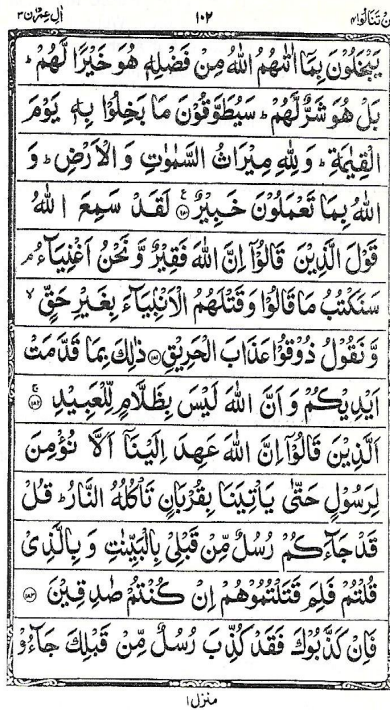 لن تنالوا۴ ۱۰۲ اٰل عمرٰن۳
يَبْخَلُوْنَ بِمَآ اٰتٰىهُمُ اللّٰهُ مِنْ فَضْلِهٖ هُوَ خَيْرًا لَّهُمْ ؕ
بَلْ هُوَ شَرٌّ لَّهُمْ ؕ سَيُطَوَّقُوْنَ مَا بَخِلُوْا بِهٖ يَوْمَ
الْقِيٰمَةِ ؕ وَ لِلّٰهِ مِيْرَاثُ السَّمٰوٰتِ وَ الْاَرْضِ ؕ وَ
اللّٰهُ بِمَا تَعْمَلُوْنَ خَبِيْرٌ ﴿۱۸۰﴾ لَقَدْ سَمِعَ اللّٰهُ
قَوْلَ الَّذِيْنَ قَالُوْۤا اِنَّ اللّٰهَ فَقِيْرٌ وَّ نَحْنُ اَغْنِيَآءُ ۘ
سَنَكْتُبُ مَا قَالُوْا وَ قَتْلَهُمُ الْاَنْۢبِيَآءَ بِغَيْرِ حَقٍّ ۙ
وَّ نَقُوْلُ ذُوْقُوْا عَذَابَ الْحَرِيْقِ ﴿۱۸۱﴾ ذٰلِكَ بِمَا قَدَّمَتْ
اَيْدِيْكُمْ وَ اَنَّ اللّٰهَ لَيْسَ بِظَلَّامٍ لِّلْعَبِيْدِ ﴿۱۸۲﴾
اَلَّذِيْنَ قَالُوْۤا اِنَّ اللّٰهَ عَهِدَ اِلَيْنَاۤ اَلَّا نُؤْمِنَ
لِرَسُوْلٍ حَتّٰى يَاْتِيَنَا بِقُرْبَانٍ تَاْكُلُهُ النَّارُ ؕ قُلْ
قَدْ جَآءَكُمْ رُسُلٌ مِّنْ قَبْلِيْ بِالْبَيِّنٰتِ وَ بِالَّذِيْ
قُلْتُمْ فَلِمَ قَتَلْتُمُوْهُمْ اِنْ كُنْتُمْ صٰدِقِيْنَ ﴿۱۸۳﴾
فَاِنْ كَذَّبُوْكَ فَقَدْ كُذِّبَ رُسُلٌ مِّنْ قَبْلِكَ جَآءُوْ
منزل۱